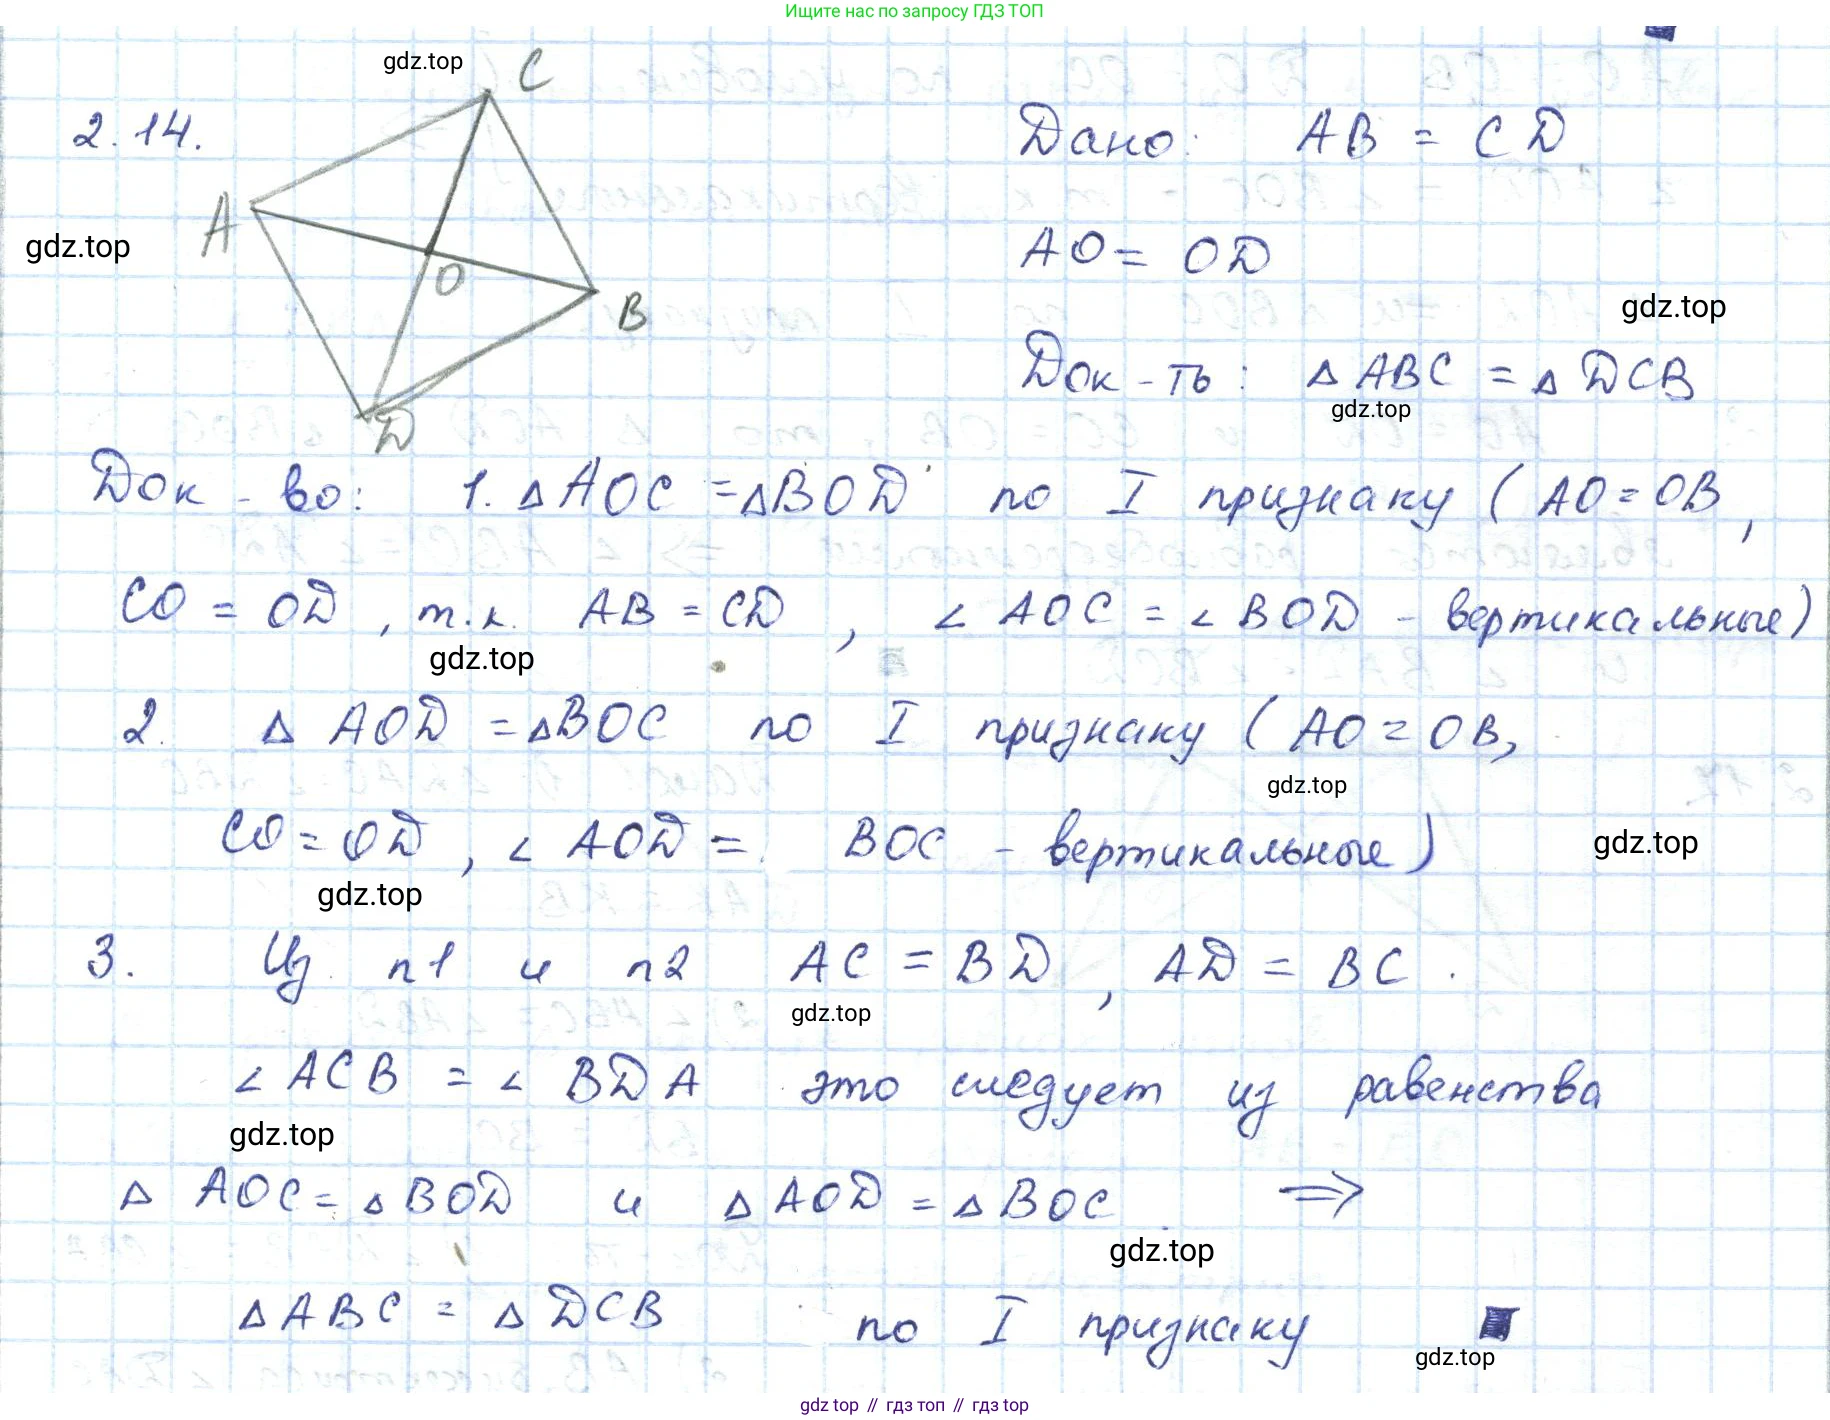 Ищите нас по запросу ГДЗ ТОП
gdz.top
C
2.14.
Дано: AB = CD
A
gdz.top
AO = OD
O
B
gdz.top
Док-ть: △ ABC = △ DCB
gdz.top
D
Док-во: 1. △ AOC = △ BOD по I признаку ( AO = OB,
CO = OD, т.к. AB = CD, ∠ AOC = ∠ BOD - вертикальные)
gdz.top
2. △ AOD = △ BOC по I признаку ( AO = OB,
gdz.top
CO = OD, ∠ AOD = BOC - вертикальные)
gdz.top
gdz.top
3. Из п1 и п2 AC = BD, AD = BC.
gdz.top
∠ ACB = ∠ BDA это следует из равенства
gdz.top
△ AOC = △ BOD и △ AOD = △ BOC. ⇒
gdz.top
△ ABC = △ DCB по I признаку
gdz.top
gdz top // гдз топ // гдз top